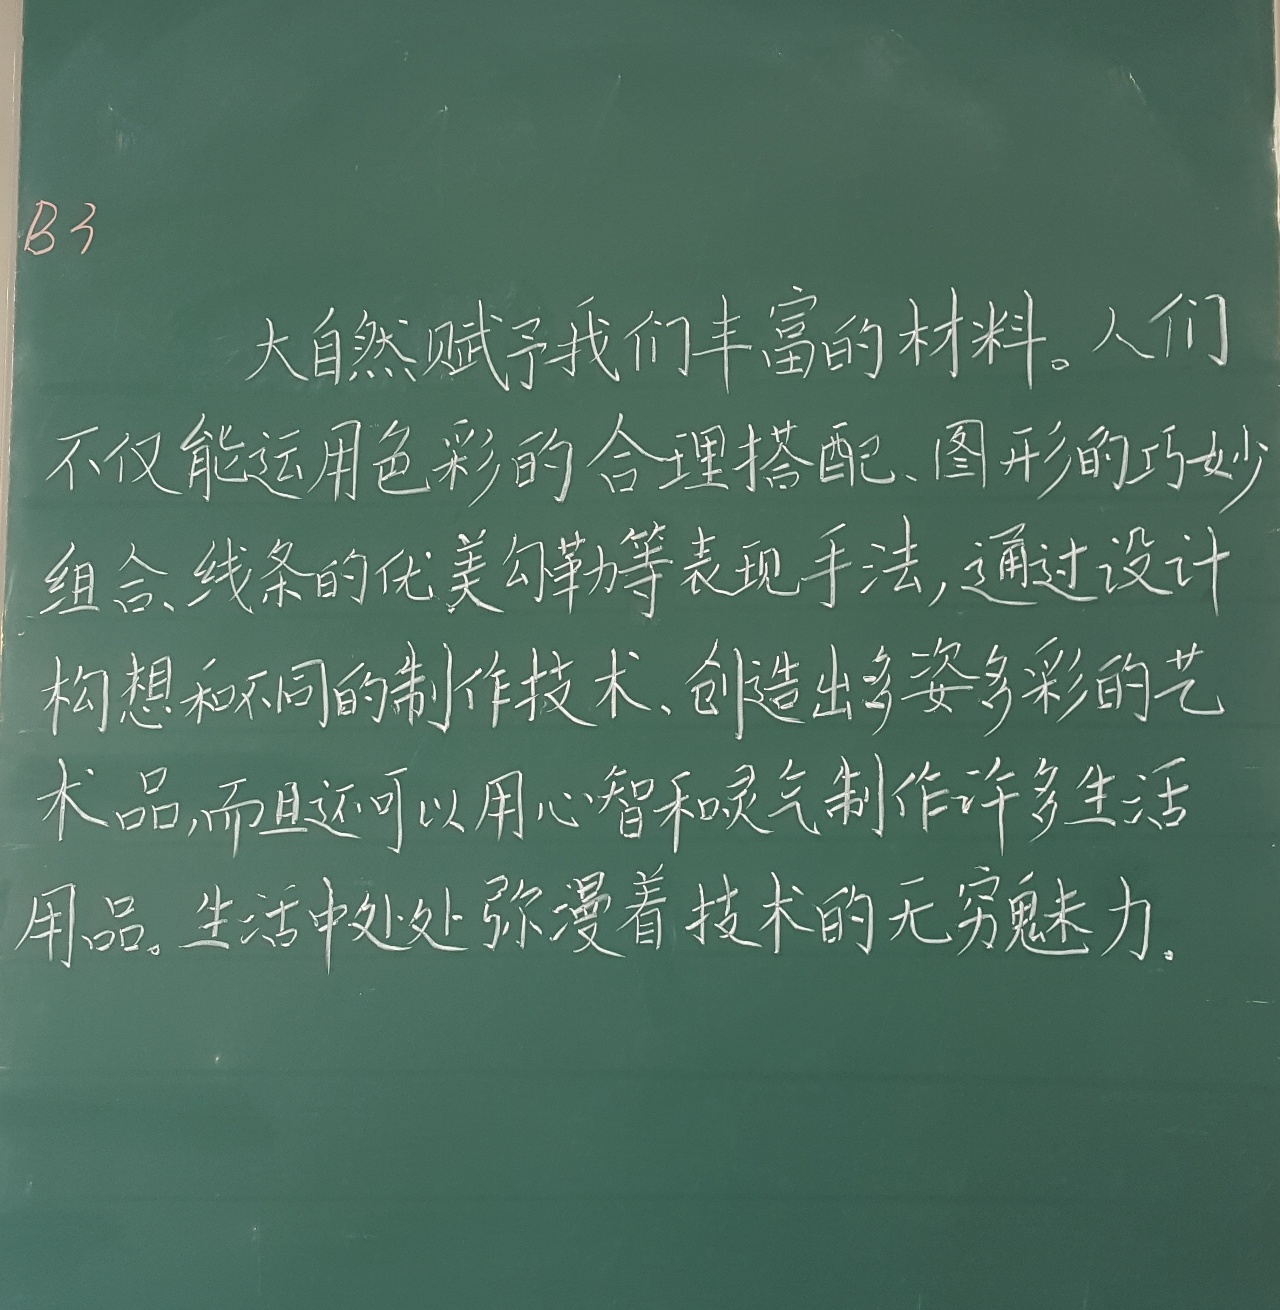 B3
大自然赋予我们丰富的材料。人们
不仅能运用色彩的合理搭配、图形的巧妙
组合、线条的优美勾勒等表现手法,通过设计
构想和不同的制作技术、创造出多姿多彩的艺
术品,而且还可以用心智和灵气制作许多生活
用品。生活中处处弥漫着技术的无穷魅力。